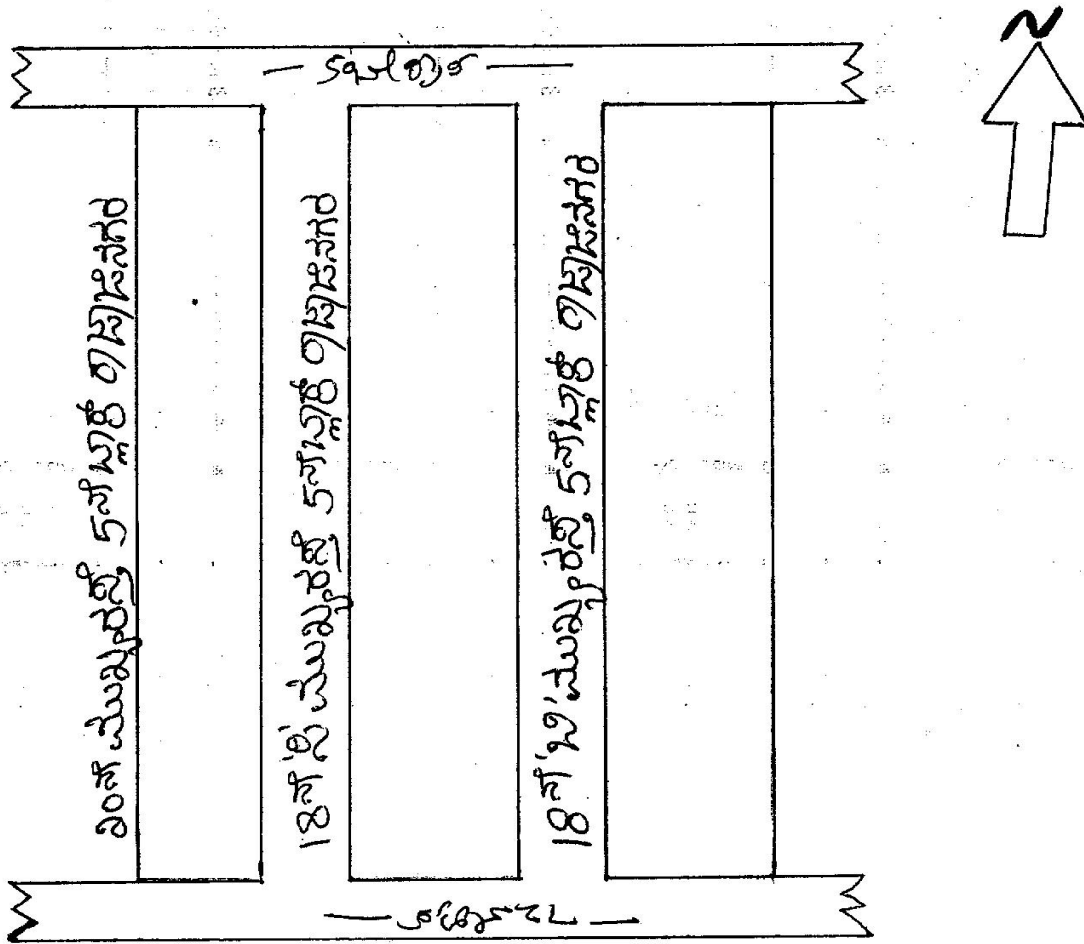 N
20ನೇ ಮುಖ್ಯರಸ್ತೆ 5ನೇ ಬ್ಲಾಕ್ ರಾಜಾಜಿನಗರ
18ನೇ 'ಸಿ' ಮುಖ್ಯರಸ್ತೆ 5ನೇ ಬ್ಲಾಕ್ ರಾಜಾಜಿನಗರ
18ನೇ 'ಬಿ' ಮುಖ್ಯರಸ್ತೆ 5ನೇ ಬ್ಲಾಕ್ ರಾಜಾಜಿನಗರ